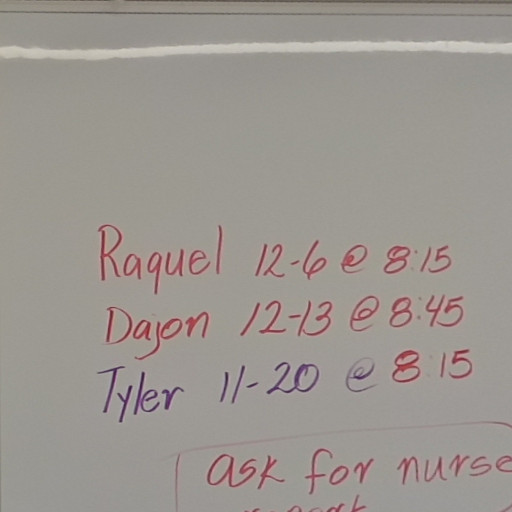 Raquel 12-6 @ 8:15
Dajon 12-13 @ 8:45
Tyler 11-20 @ 8:15
ask for nurse